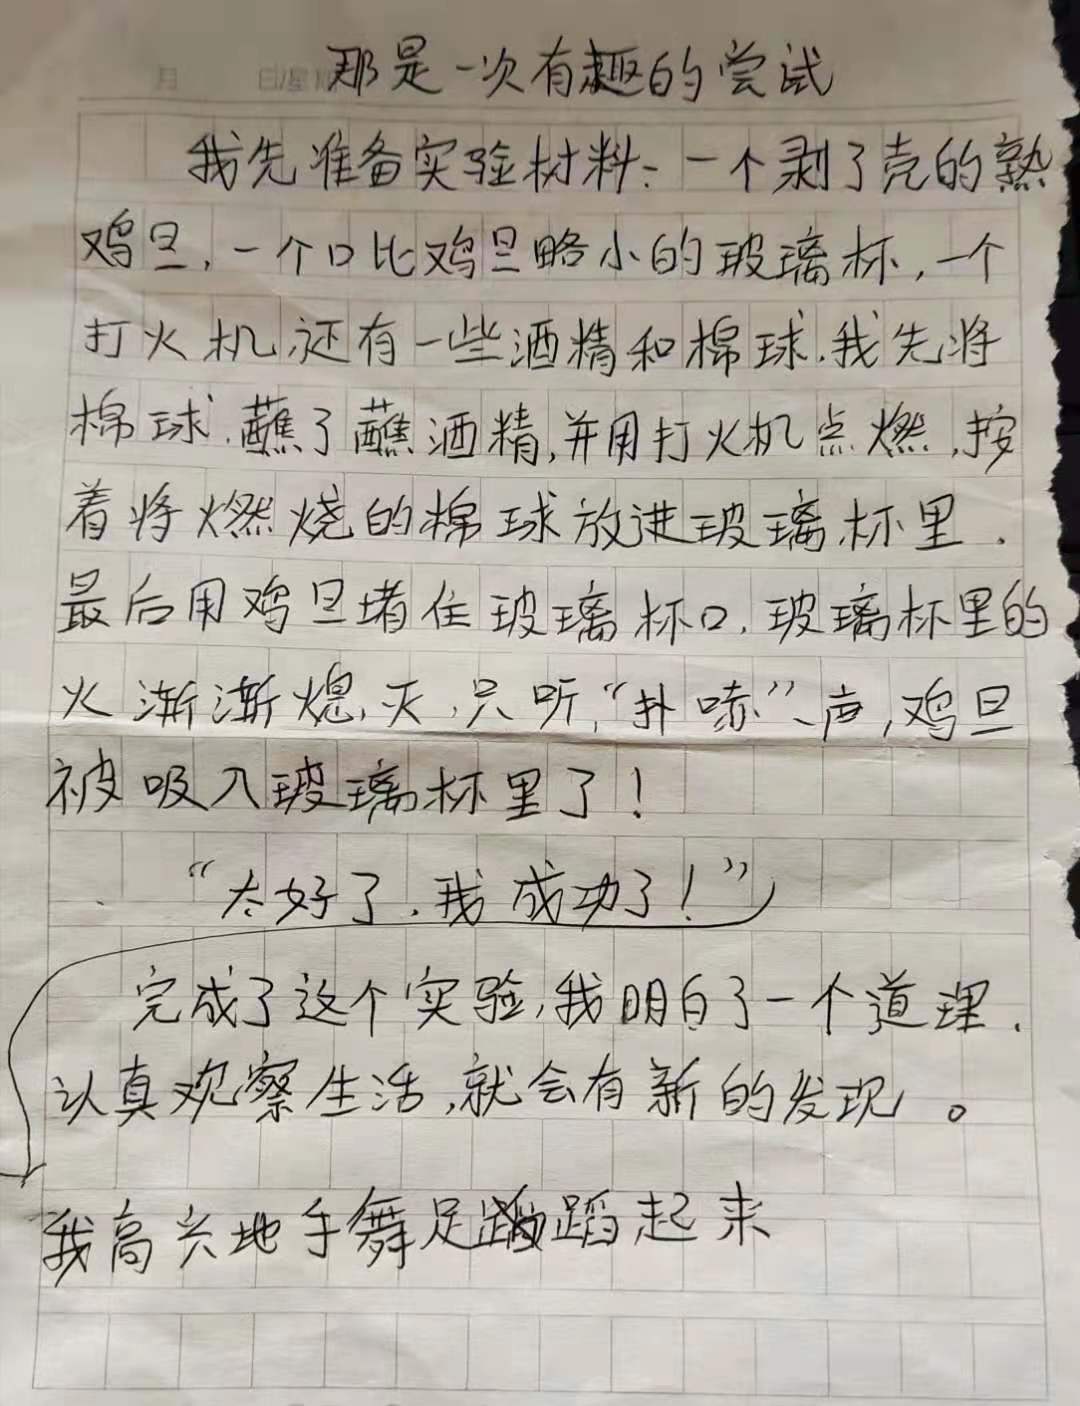 那是一次有趣的尝试
我先准备实验材料:一个剥了壳的熟
鸡旦,一个口比鸡旦略小的玻璃杯,一个
打火机,还有一些酒精和棉球.我先将
棉球,蘸了蘸酒精,并用打火机点燃,接
着将燃烧的棉球放进玻璃杯里.
最后用鸡旦堵住玻璃杯口.玻璃杯里的
火渐渐熄灭,只听,“扑哧”一声,鸡旦
被吸入玻璃杯里了!
“太好了,我成功了!”
完成了这个实验,我明白了一个道理.
认真观察生活,就会有新的发现。
我高兴地手舞足蹈起来